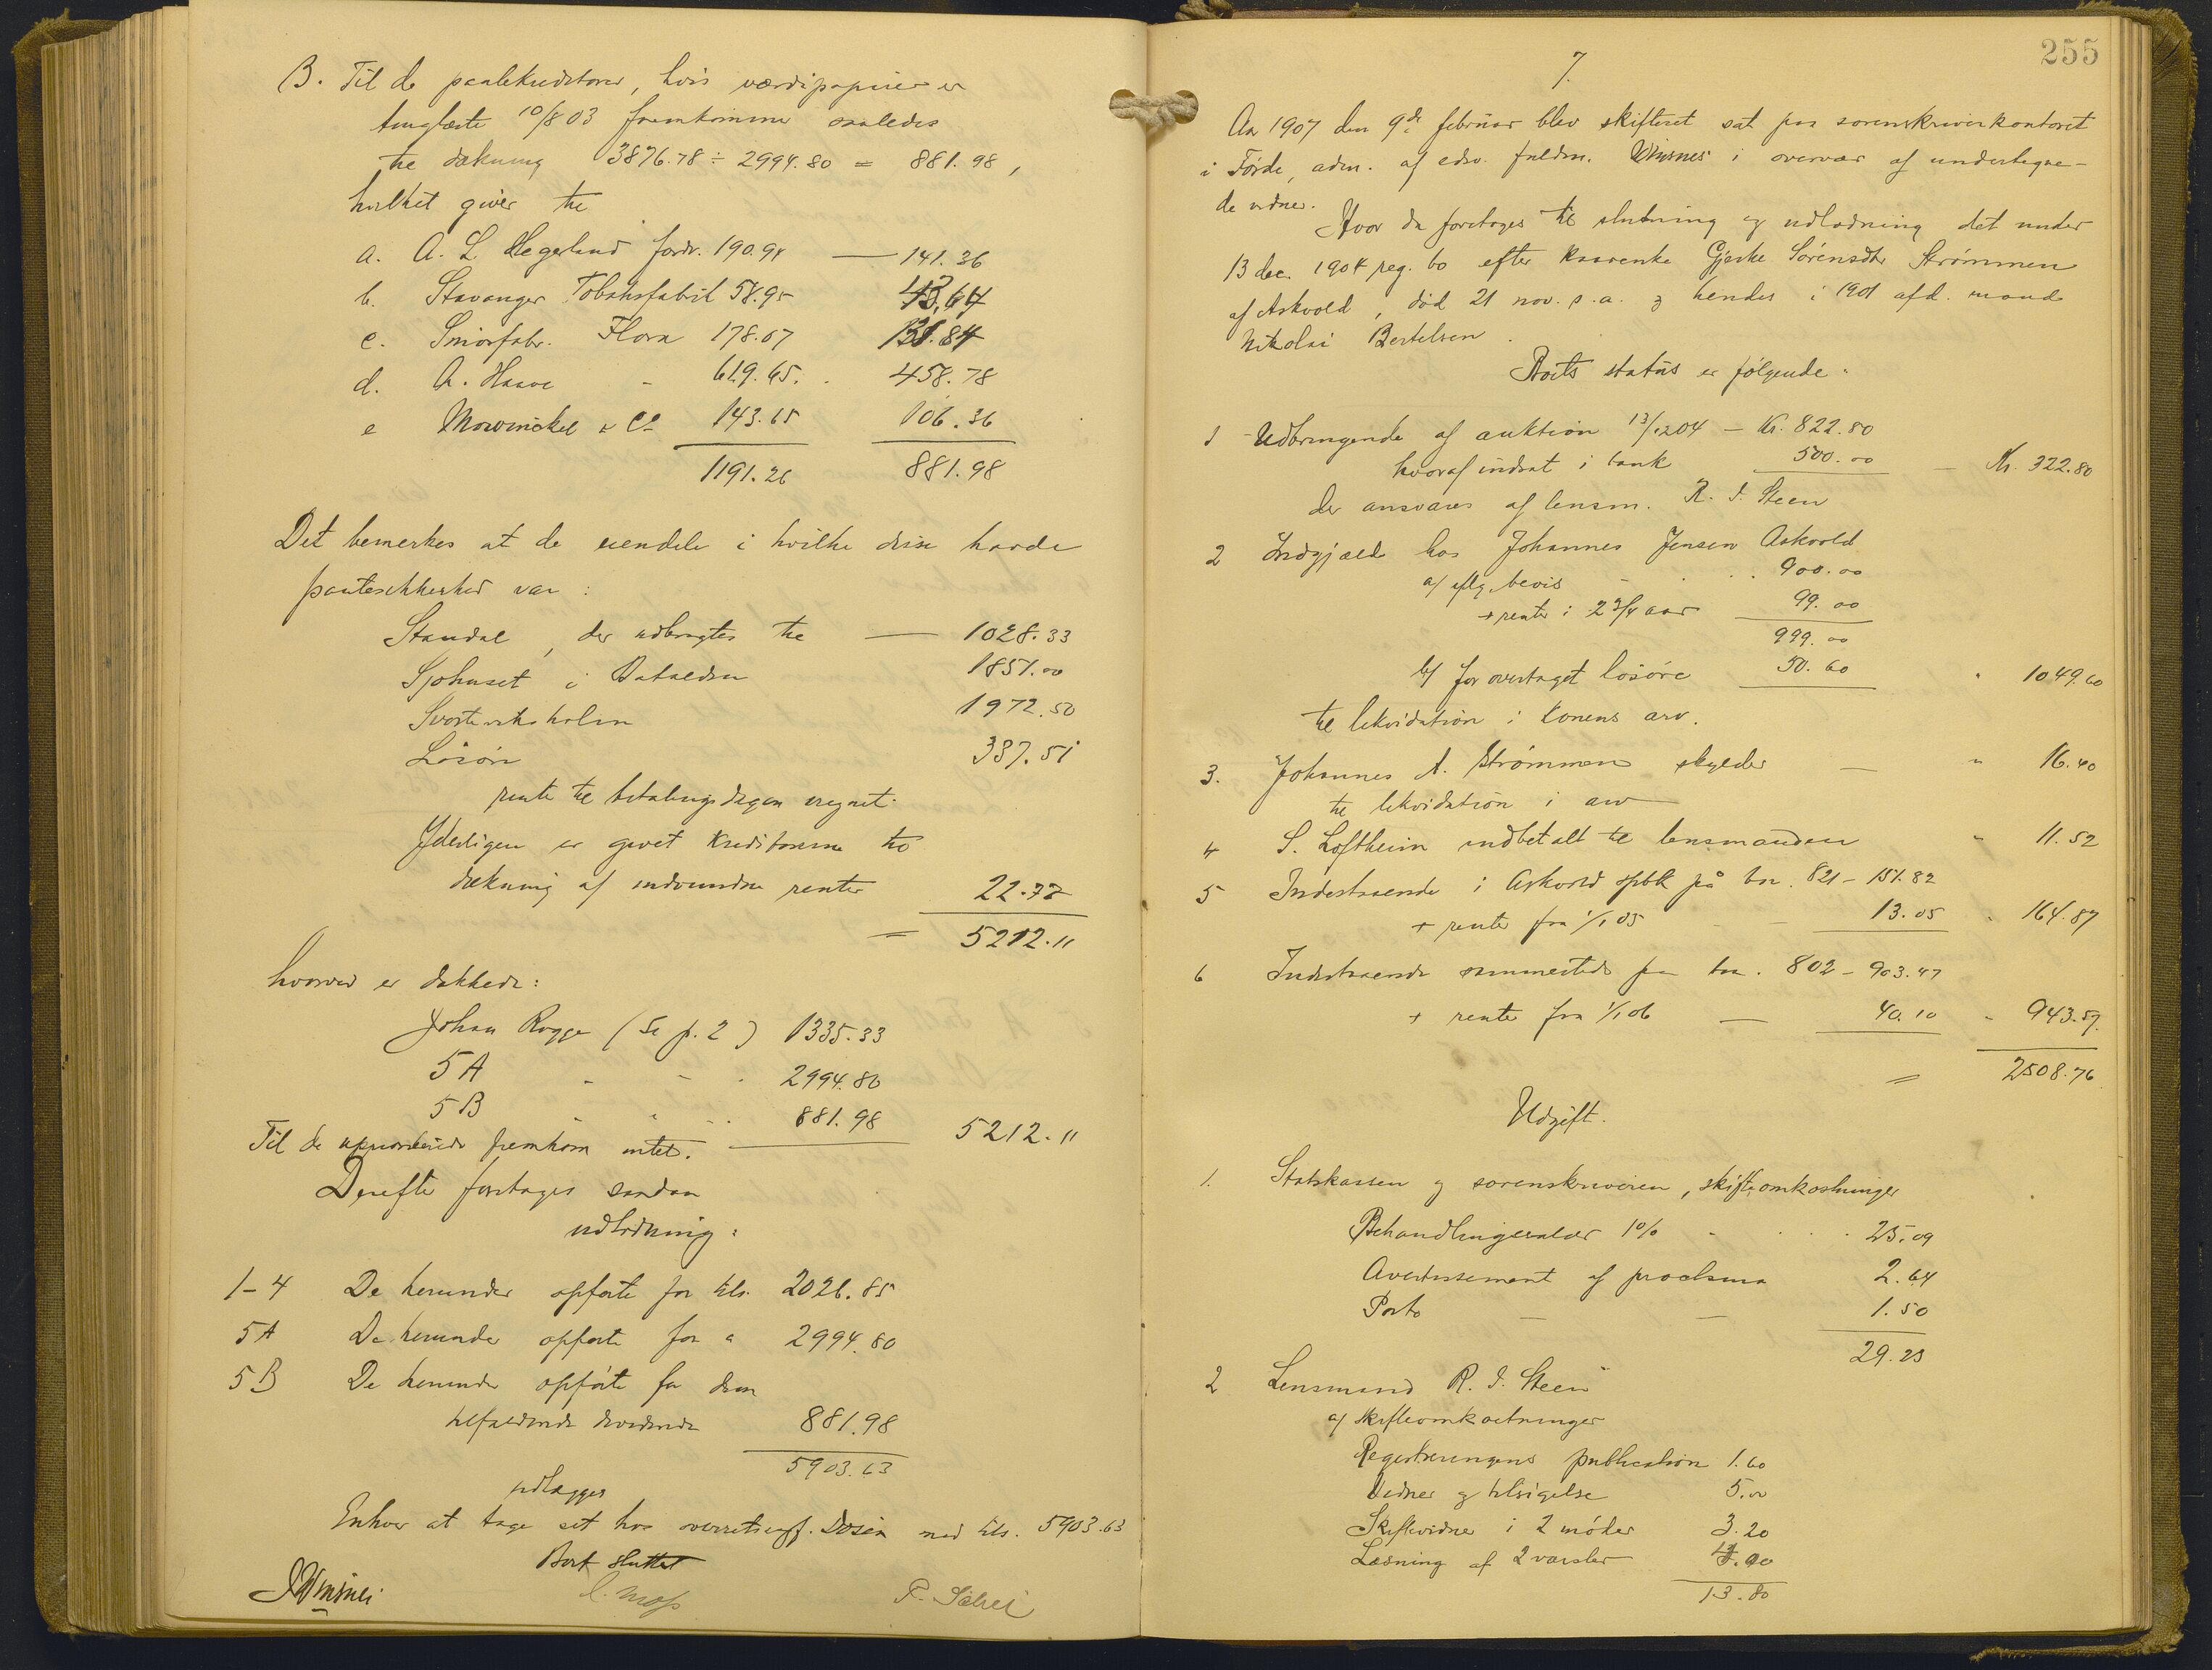 B. Til de pantekreditorer, hvis værdipapirer er
tinglæste 10/8 03 fremkommer saaledes
til dækning 3876.78 ÷ 2994.80 = 881.98,
hvilket giver til
a. A. L. Hegerlund fordr. 190.94 — 141.36
b. Stavanger Tobaksfabrik 58.95 43,64
c. Smörfabr. Flora 178.07 131.84
d. A. Haave - 619.65. 458.78
e Mowinckel & Co 143.65 106.36
1191.26 881.98
Det bemerkes at de eiendele i hvilke disse havde
pantesikkerhed var:
Standal, der udbragtes til — 1028.33
Sjøhuset i Bataldsn 1851.00
Svorteviksholm 1972.50
Løsøre 337.51
rente til betalingsdagen iregnet.
Yderligere er givet kreditorerne til
dækning af indvundne renter 22.77
= 5212.11
hvorved er dækkede:
Johan Rogge (Se p. 2) 1335.33
5A - - . 2994.80
5B - " .. 881.98 5212.11
Til de uprioriterede fremkom intet.
Derefter foretages saadan
udlodning:
1-4 De herunder opførte for kls. 2026.85
5A De herunder opførte for " 2994.80
5B De herunder opførte for dem
tilfaldende dividende 881.98
5903.63
udlægges
Enhver at tage sit hos overretssagf. Døsen med kls. 5903.63
Boet sluttet
C. Moss
255
7.
Aar 1907 den 9de februar blev skifteret sat paa sorenskriverkontoret
i Førde, adm. af edsv. fuldm. Ømsnes i overvær af undertegne-
de vidner.
Hvor da foretoges til slutning og udlodning det under
13 dec. 1904 reg. bo efter kaarenke Gjertke Sörensdtr Strømmen
af Askvold, död 21 nov. s. a. og hendes i 1901 afd. mand
Nikolai Bertelsen.
Boets status er følgende:
1 Udbringende af auktion 13/12 04 — Kr. 822.80
hvoraf indsat i bank 500.00 — Kr. 322.80
der ansvares af lensm. R. I. Steen
2 Indgjæld hos Johannes Jensen Askvold
a/ iflg. bevis - . . . 900.00
+ rente i 2 3/4 aar 99.00
999.00
b/ for overtaget løsøre 50.60 " 1049.60
til likvidation i konens arv.
3. Johannes A. Strømmen skylder — " 16.40
til likvidation i arv
4 S. Loftheim indbetalt til lensmanden " 11.52
5 Indestaaende i Askvold spbk på bn. 821 - 151.82
+ rente fra 1/1 05 - — 13.05 " 164.87
6 Indestaaende sammesteds paa bn. 802 - 903.47
+ rente fra 1/1 06 — 40.10 " 943.57
= 2508.76
Udgift.
1. Statskassen og sorenskriveren, skifteomkostninger
Behandlingssalær 1% - . . . 25.09
Avertissement af proclama 2.64
Porto — — 1.50
29.23
2 Lensmand R. I. Steen
a/ skifteomkostninger
Registreringens publication 1.60
Vidner og tilsigelse 5.00
Skiftevidner i 2 møder 3.20
Læsning af 2 varsler 4.00
13.80